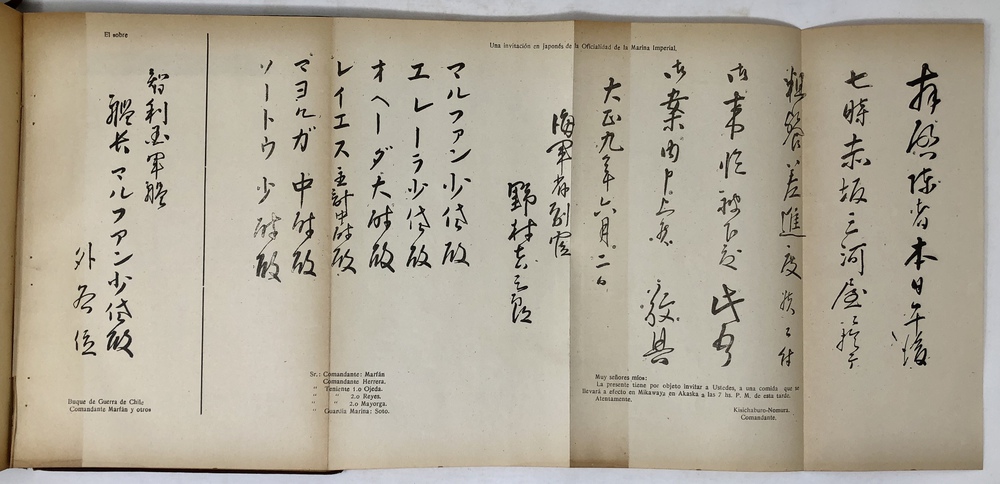 Una invitación en japonés de la Oficialidad de la Marina Imperial.
拝啓陳者本日午後
七時赤坂三河屋ニ於テ
粗餐差進度候ニ付
御臨被下度此段
御案内申上候 敬具
大正九年六月二日
海軍省副官
野村吉三郎
マルファン少佐殿
エレーラ少佐殿
オヘーダ大尉殿
レイエス主計中尉殿
マヨルガ中尉殿
ソートウ少尉殿
Muy señores mios:
La presente tiene por objeto invitar a Ustedes, a una comida que se
llevará a efecto en Mikawaya en Akaska a las 7 hs. P. M. de esta tarde.
Atentamente.
Kisichaburo-Nomura.
Comandante.
Sr.: Comandante: Marfán
Comandante Herrera.
" Teniente 1.o Ojeda.
" " 2.o Reyes.
" " 2.o Mayorga.
" Guardia Marina: Soto.
El sobre
智利国軍艦
艦長マルファン少佐殿
外各位
Buque de Guerra de Chile
Comandante Marfán y otros